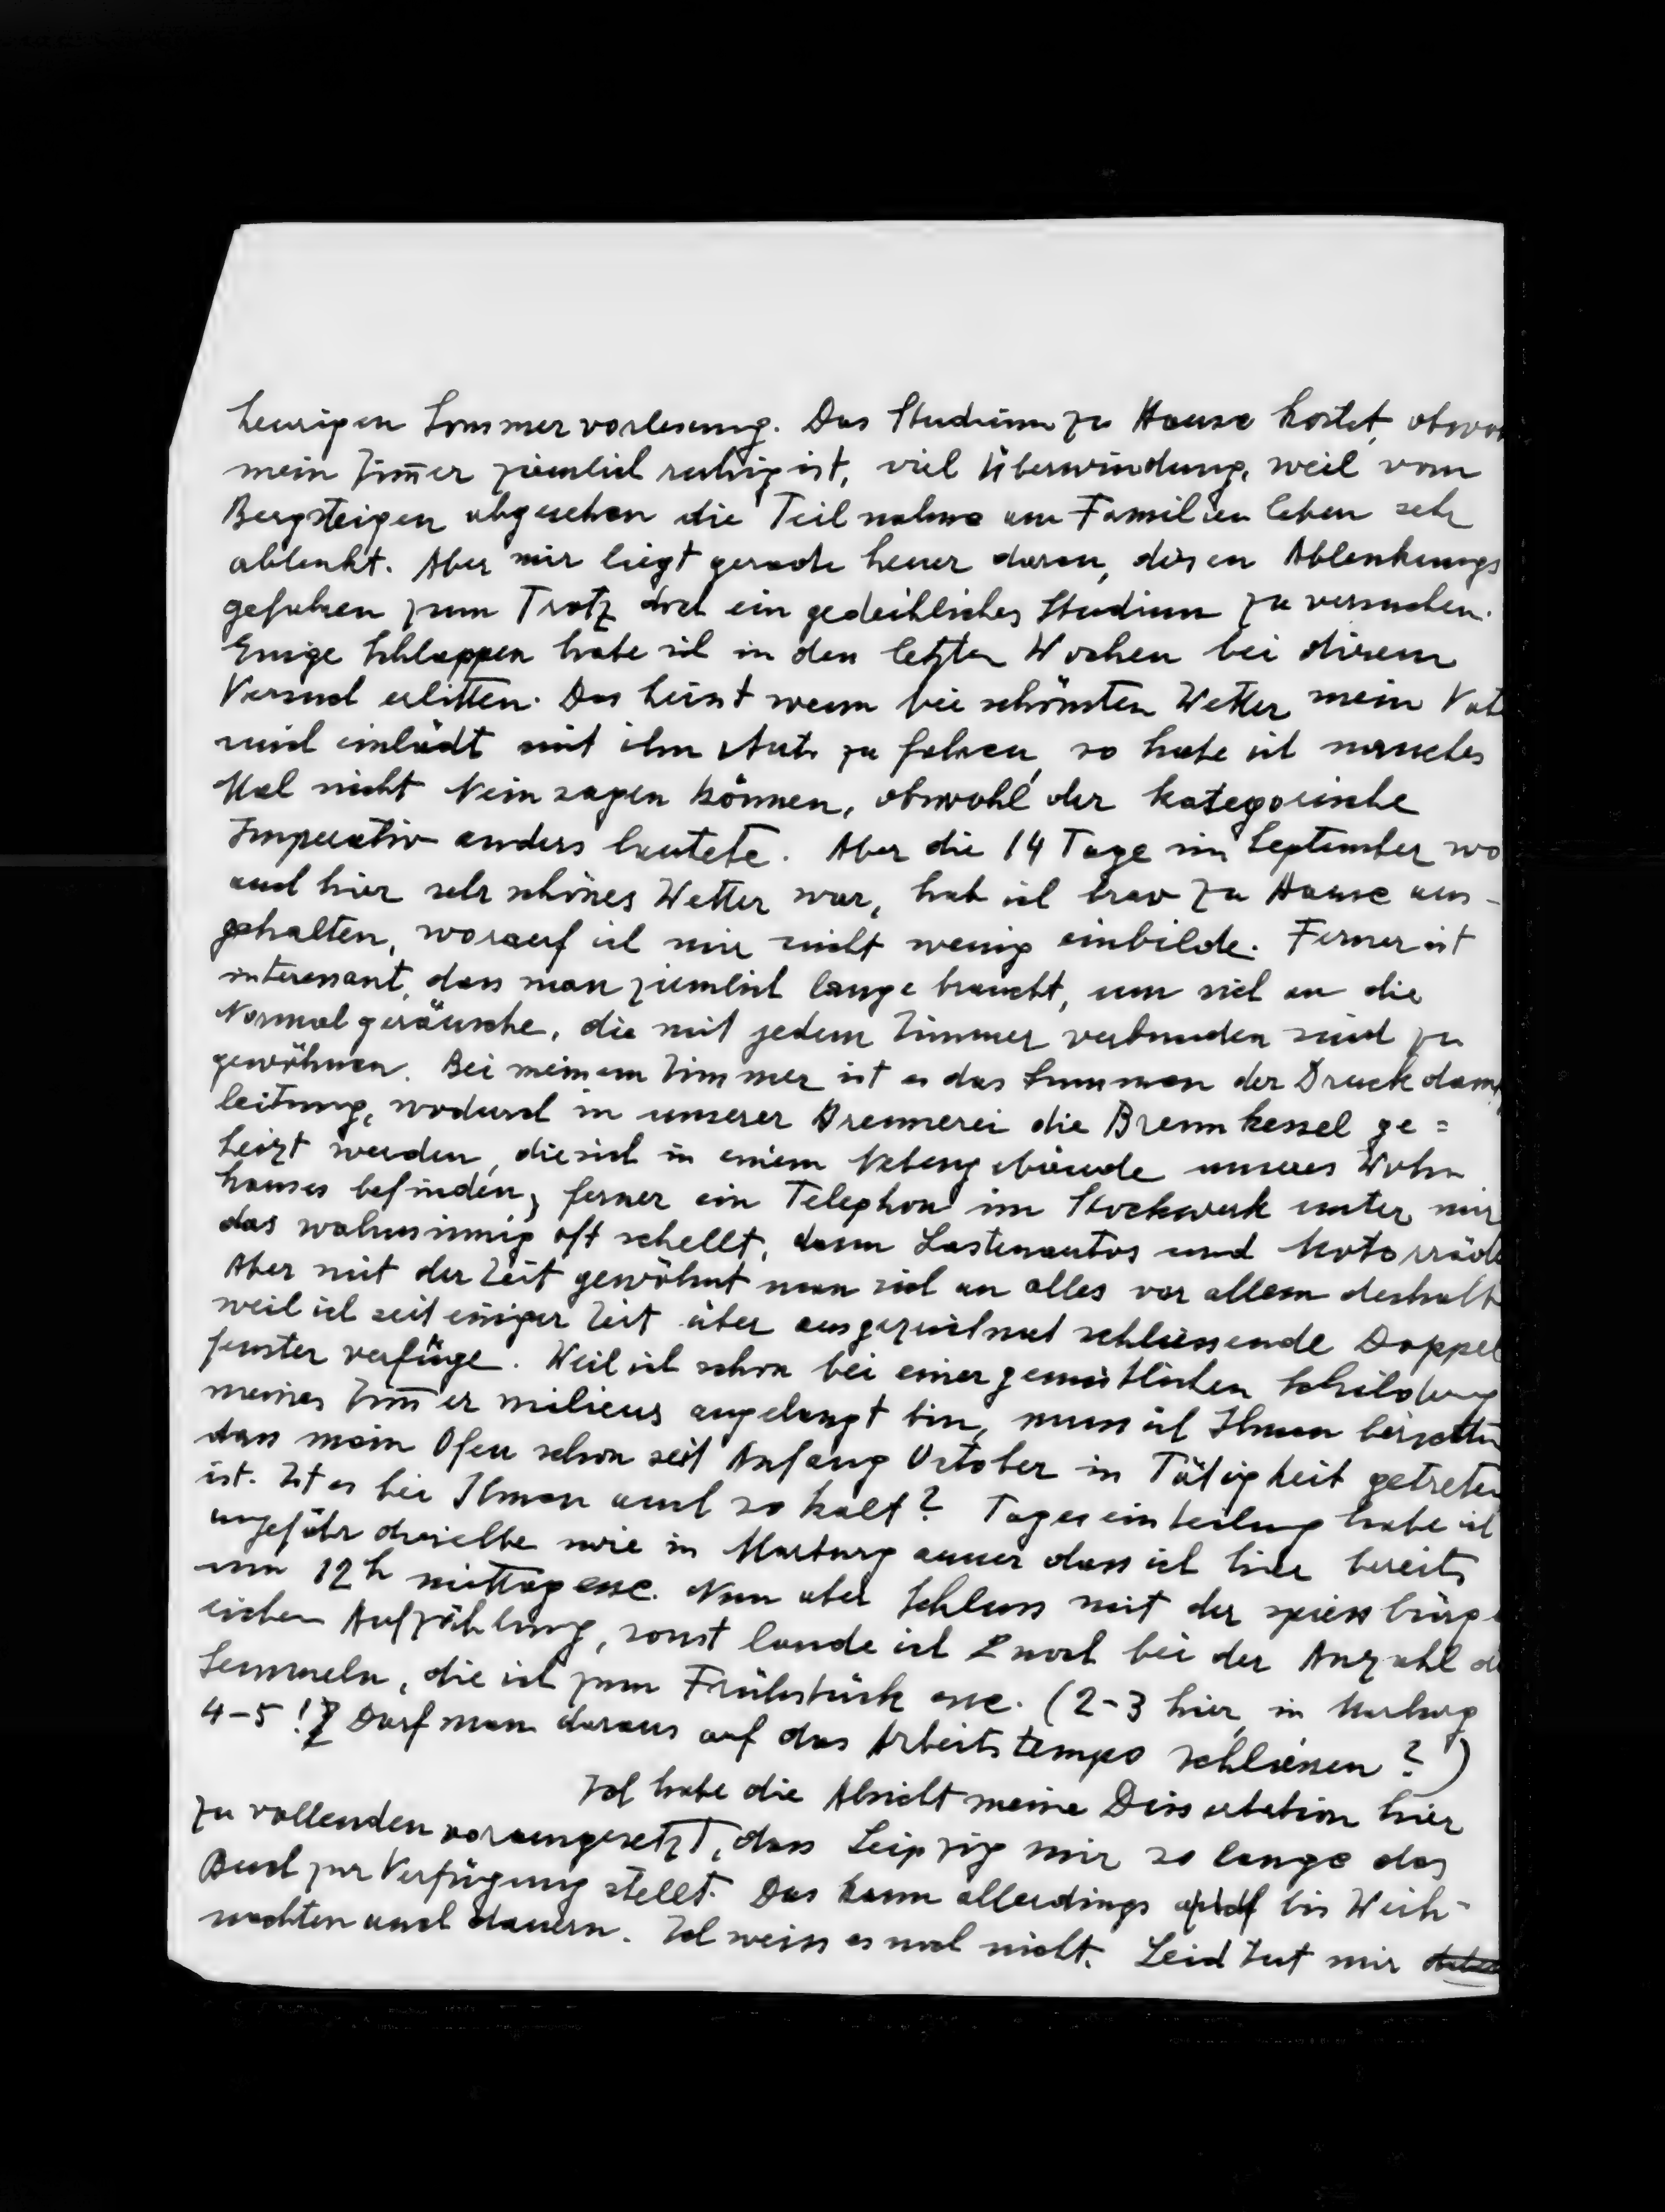 heurigen Sommervorlesung. Das Studium zu Hause kostet, obwo
mein Zim̅er ziemlich ruhig ist, viel Überwindung, weil vom
Bergsteigen abgesehen die Teilnahme am Familienleben sehr
ablenkt. Aber mir liegt gerade heuer daran, diesen Ablenkungs
gefahren zum Trotz doch ein gedeihliches Studium zu versuchen.
Einige Schlappen habe ich in den letzten Wochen bei diesem
Versuch erlitten. Das heisst wenn bei schönsten Wetter mein Vat
mich einlädt mit ihm Auto zu fahren, so habe ich manches
Mal nicht Nein sagen können, obwohl der kategorische
Imperativ anders lautete. Aber die 14 Tage im September wo
auch hier sehr schönes Wetter war, hab ich brav zu Hause aus-
gehalten, worauf ich mir nicht wenig einbilde. Ferner ist
interessant, dass man ziemlich lange braucht, um sich an die
Normalgeräusche, die mit jedem Zimmer verbunden sind zu
gewöhnen. Bei meinem Zimmer ist es das Summen der Druckdamp
leitung, wodurch in unserer Brennerei die Brennkessel ge=
heizt werden, die sich in einem Nebengebäude unseres Wohn
hauses befinden, ferner ein Telephon im Stockwerk unter mir
das wahnsinnig oft schellt, dann Lastenautos und Motorräde
Aber mit der Zeit gewöhnt man sich an alles vor allem deshalb
weil ich seit einiger Zeit über ausgezeichnet schliessende Doppel
fenster verfüge. Weil ich schon bei einer gemütlichen Schilderung
meines Zim̅ermilieus angelangt bin, muss ich Ihnen
dass mein Ofen schon seit Anfang October in Tätigkeit getreten
ist. Ist es bei Ihnen auch so kalt? Tageseinteilung habe ich
ungefähr dieselbe wie in Marburg ausser dass ich hier bereits
um 12h mittagesse. Nun aber Schluss mit der spiessbürge
rischen Aufzählung, sonst lande ich noch bei der Anzahl de
Semmeln, die ich zum Frühstück esse. (2-3 hier, in Marburg
4-5! Darf man daraus auf das Arbeitstempo schliessen?)
Ich habe die Absicht meine Dissertation hier
zu vollenden vorausgesetzt, dass Leipzig mir so lange das
Buch zur Verfügung stellt. Das kann allerdings bis Weih-
nachten auch dauern. Ich weiss es noch nicht. Leid tut mir